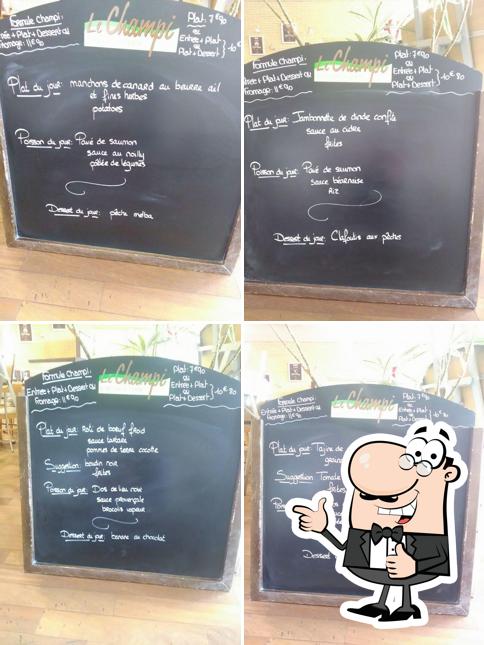 formule Champi:
Entrée + Plat + Dessert ou
fromage: 11€90
Le Champi
Plat: 7€90
ou
Entrée + Plat
ou
Plat + Dessert
Plat du jour: manchons de canard au beurre ail
et fines herbes
potatoes
Poisson du jour: Pavé de saumon
sauce au noilly
poêlée de légumes
Dessert du jour: pêche melba
formule Champi:
Entrée + Plat + Dessert ou
fromage: 11€90
Le Champi
Plat: 7€90
ou
Entrée + Plat
ou
Plat + Dessert
10€80
Plat du jour: Jambonnette de dinde confite
sauce au cidre
frites
Poisson du jour: Pavé de saumon
sauce béarnaise
Riz
Dessert du jour: Clafoutis aux pêches
formule Champi:
Entrée + Plat + Dessert ou
fromage: 11€90
Le Champi
Plat: 7€90
ou
Entrée + Plat
ou
Plat + Dessert
10€80
Plat du jour: Roti de boeuf froid
sauce tartare
pommes de terre cocotte
Suggestion: boudin noir
frites
Poisson du jour: Dos de lieu noir
sauce provençale
brocolis vapeur
Dessert du jour: banane au chocolat
formule Champi:
Entrée + Plat + Dessert ou
fromage: 11€90
Le Champi
Plat: 7€90
Plat du jour: Tajine de
Suggestion Tomate
frites
Dessert